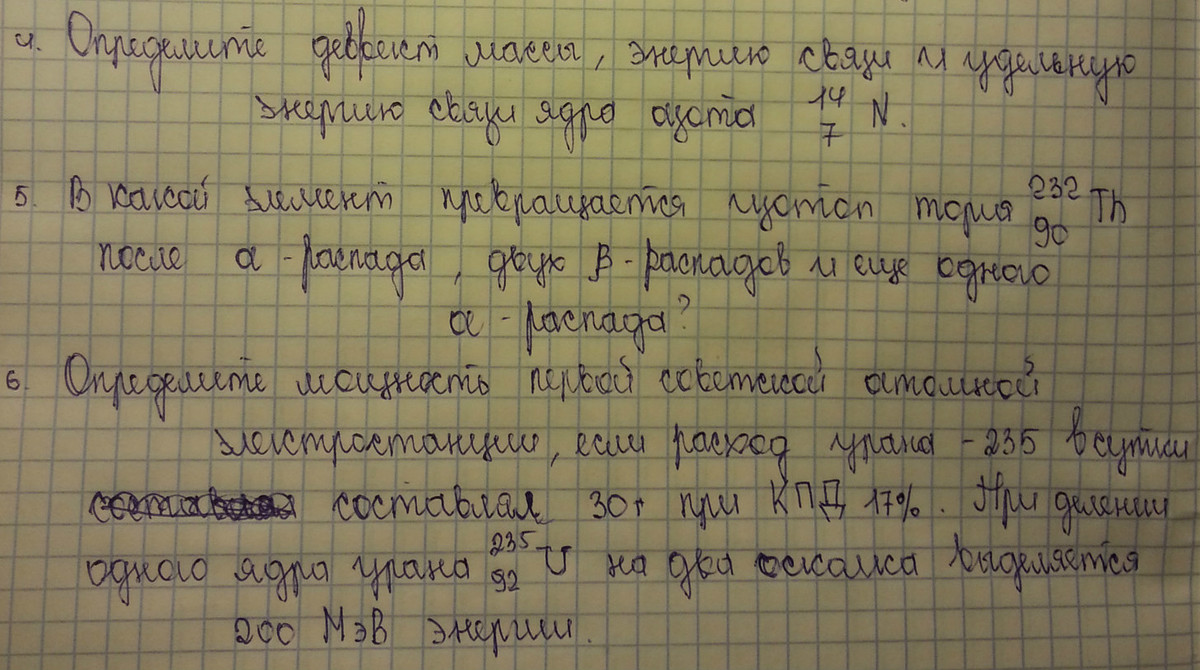 4. Определите дефект массы, энергию связи и удельную
энергию связи ядра азота ¹⁴₇ N.
5. В какой элемент превращается изотоп тория ²³²₉₀ Th
после α - распада, двух β - распадов и еще одного
α - распада?
6. Определите мощность первой советской атомной
электростанции, если расход урана - 235 в сутки
составлял 30г при КПД 17%. При делении
одного ядра урана ²³⁵₉₂ U на два осколка выделяется
200 МэВ энергии.